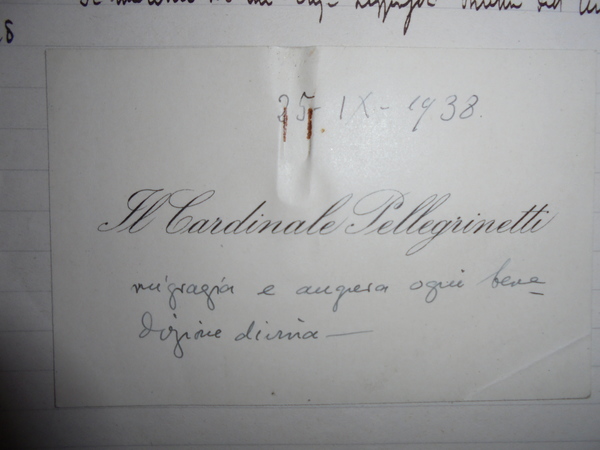 25-IX-1938.
Il Cardinale Pellegrinetti
ringrazia e augura ogni bene-
dizione divina —